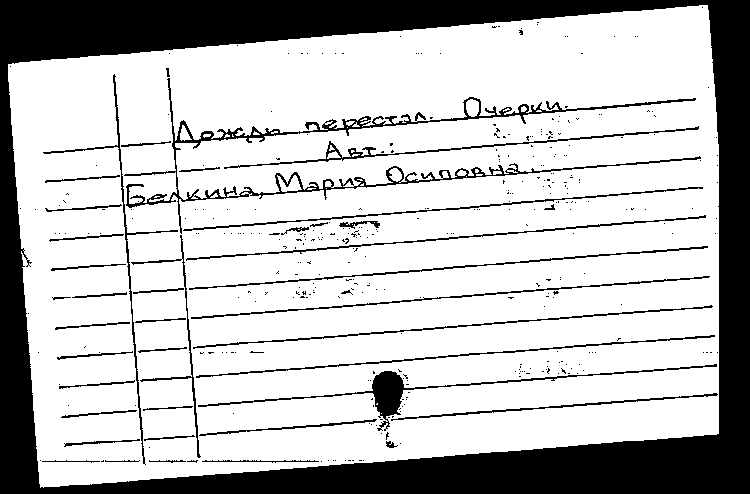 Дождь перестал. Очерки.
Авт.:
Белкина, Мария Осиповна.